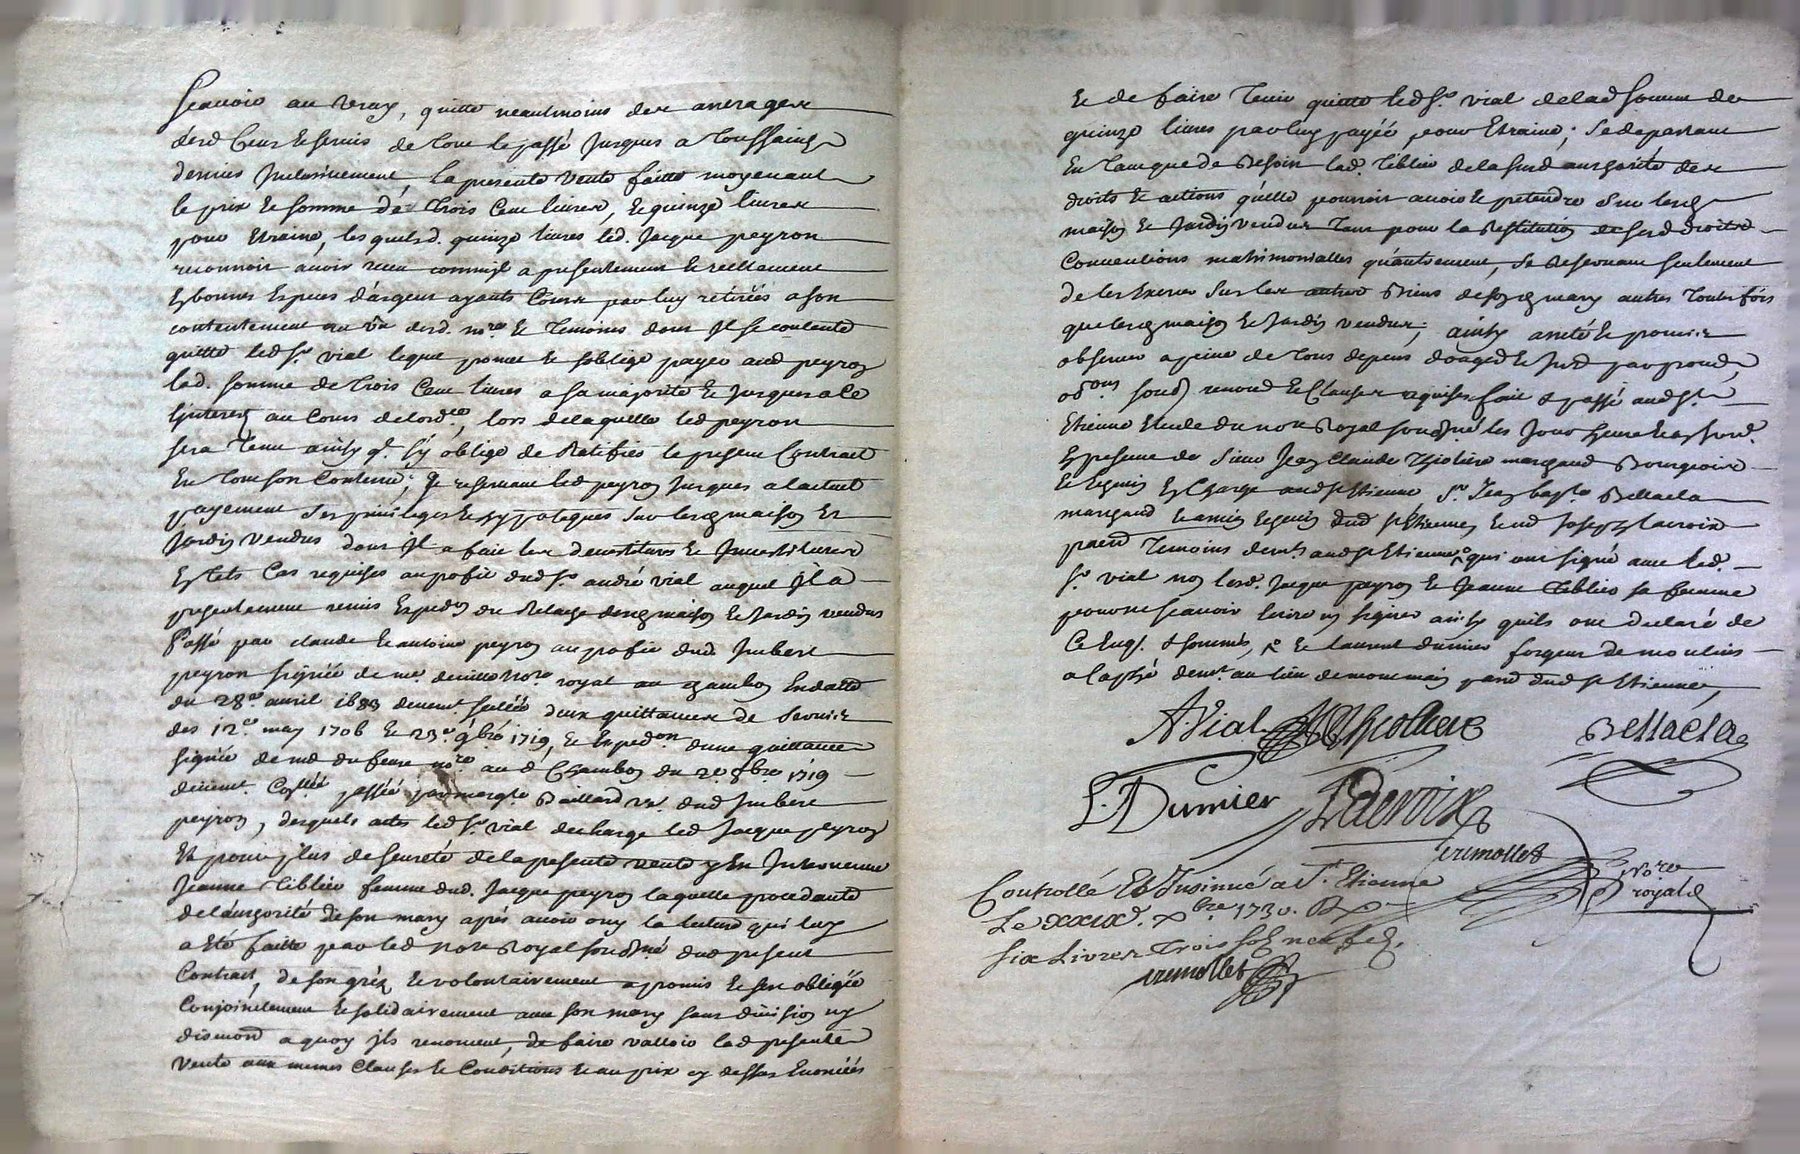 scavoir au vray, quitte neautmoins des arrerages
desd Cens et servis de tout le passé Jusques a Toussaincts
dernier Inclusivement, La presente vente faitte moyenant
le prix et somme de trois Cent livres, et quinze livres
pour Etraine, lesquels d. quinze livres led. Jacque peyron
reconnoit avoir receu comme a presentement et reellement
En bonnes Especes d'argent ayants Cours par luy retirées a son
contentement au vu desd. nore et Temoins dont Il se contente
quitte led sr vial leque promet et s'oblige payer aud peyron
lad. somme de trois Cent livres a sa majorité et Jusques a Ce
l'interest au Cours de lord.ce, lors de laquelle led peyron
sera tenu ainsy q. s'y oblige de Ratifier le present Contract
En tout son Contenu; se reservant led peyron Jusques a lactuel
payement ses privileges et hypoteques sur lesd maison et
Jardin vendus dont Il a fait les devestitures et Investitures
En tels Cas requises au profit dud sr andré vial auquel Il a
presentement remis Expedon du Relache desd maison et Jardin vendus
Passé par claude et antoine peyron au profit dud Imbert
peyron signée de me nore royal au chambon En datte
du 28e avril 1683 deuement scellée deux quittances de
des 12e may 1706 et 23e 9bre 1719, et Expedon dune quittance
signée de me du feure nore au d Chambon du 2e 8bre 1719
deuemt. Collée passée par margte Baillard ve dud Imbert
peyron, desquels actes led sr vial decharge led Jacque peyron
Et pour plus de seureté de la presente vente y Est Intervenue
Jeanne Tiblier femme dud. Jacque peyron laquelle procedante
de l'authorité de son mary après avoir ouy la lecture qui luy
a Eté faitte par led nore Royal sousné dud present
Contract, de son gréz et volontairement a promis et s'est obligée
Conjoinctement et solidairement avec son mary sans division ny
discution a quoy Ils renoncent, de faire valloir lad presente
vente aux memes Clauses et Conditions et au prix cy dessus Enoncées
Et de faire tenir quitte led sr vial de lad somme de
quinze livres par luy payée pour Etraine; se departant
En tant que de Besoin lad. Tiblier de la susd authorité des
droits et actions qu'elle pourroit avoir et pretendre sur lesd
maison et Jardin vendus tant pour la Restitution de sesd droits
Conventions matrimonialles qu'autrement, se Reservant seulement
de les Exercer sur les autres Biens de sond mary autres toutesfois
que lesd maison et Jardin vendus; ainsy arrêté et promis
observer a peine de tous depens domages et Int par
obons soub renond et Clauses requises fait et passé aud St
Etienne Etude du nore Royal sousné les Jour
En presence de sieur Jean Claude Thioliere marchand Bourgeois
et Echevin En Charge aud st Etienne sr Jean bapte Bellacla
marchand et ancien Echevin dud st Etienne, et me Joseph Lacroix
pacn Temoins demts aud st Etienne qui ont signé avec led.
sr vial non lesd. Jacque peyron et Jeanne Tiblier sa femme
pour ne scavoir Ecrire ny signer ainsy quils ont declaré de
Ce Enq. et sommés, et Laurent dumier forgeur de moulins
a demt. au lieu de montmain parre dud st Etienne,
A. Vial Thiolliere Bellacla
L. Dumier Lacroix
Tremollet
Nore
royal
Controllé Et Insinué a St. Etienne
Le xxixe. xbre 1730. R
six Livres Trois sols neuf d.
Tremollet